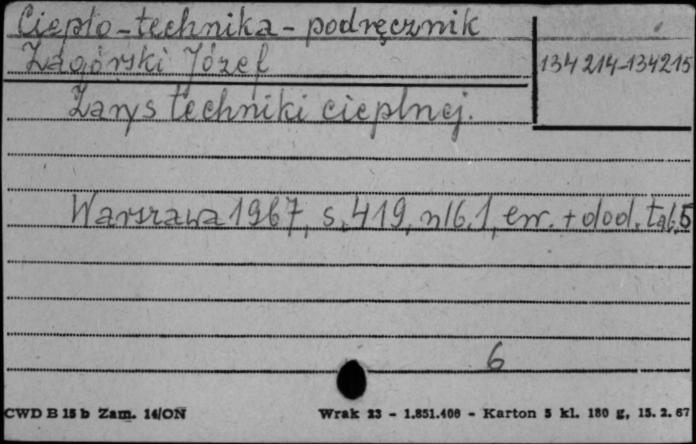 Ciepło-technika - podręcznik
Zagórski Józef
134 214-134215
Zarys techniki cieplnej.
Warszawa 1967, s. 419, nlb. 1, err. + dod. tab. 5
6
CWD B 15 b Zam. 14/ON
Wrak 23 - 1.851.400 - Karton 5 kl. 180 g, 15. 2. 67